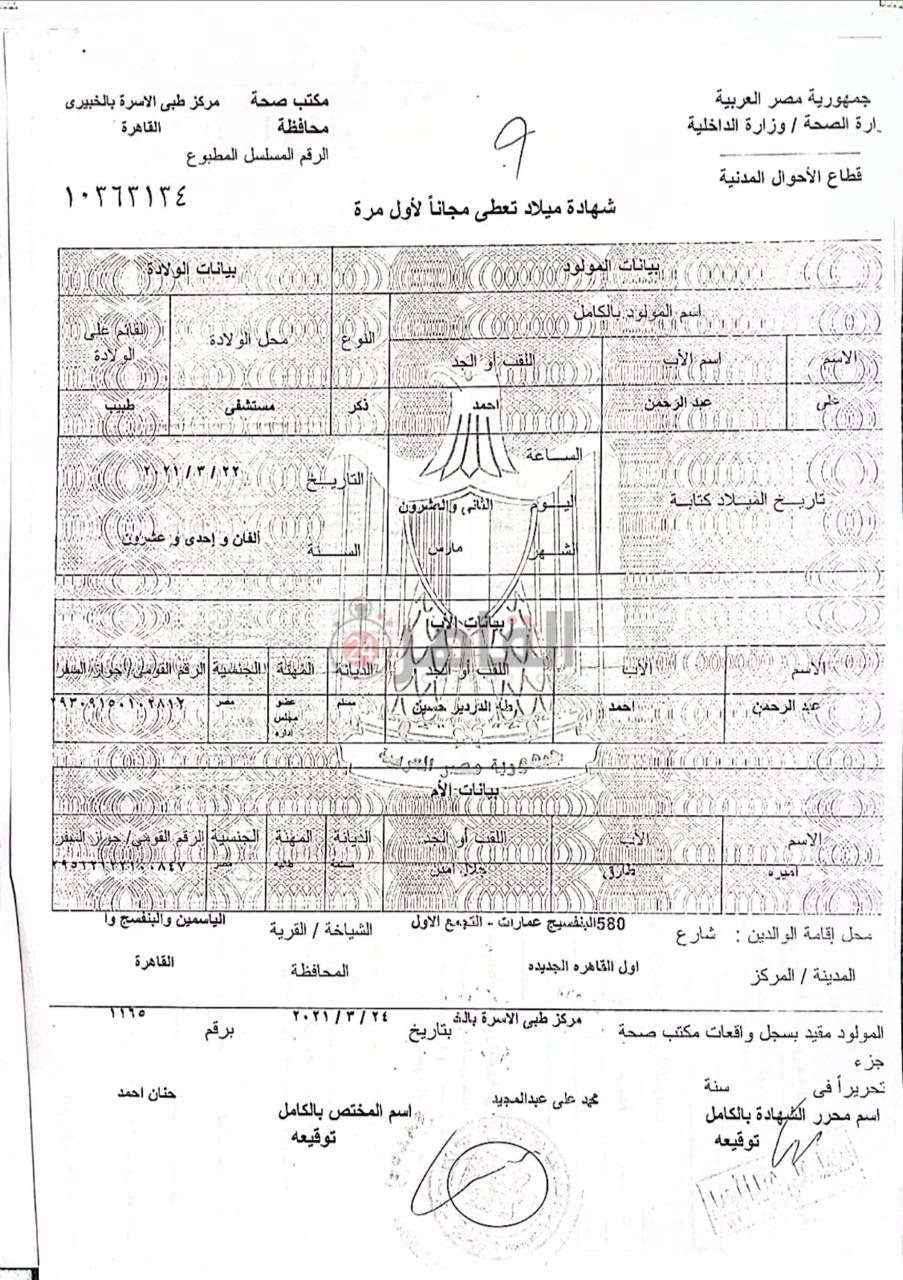 جمهورية مصر العربية
ارة الصحة / وزارة الداخلية
قطاع الأحوال المدنية
مكتب صحة مركز طبى الاسرة بالخبيرى
محافظة القاهرة
الرقم المسلسل المطبوع
١٠٣٦٣١٣٤
شهادة ميلاد تعطى مجاناً لأول مرة
بيانات المولود بيانات الولادة
اسم المولود بالكامل النوع محل الولادة القائم على الولادة
الاسم اسم الأب اللقب أو الجد
على عبد الرحمن احمد ذكر مستشفى طبيب
تاريخ الميلاد كتابة
الساعة التاريخ ٢٠٢١/٣/٢٢
اليوم الثانى والعشرون
الشهر مارس السنة ألفان و إحدى و عشرون
بيانات الأب
القاهرة 24
الاسم الأب اللقب أو الجد الديانة المهنة الجنسية الرقم القومى/ جواز السفر
عبد الرحمن احمد طه الدردير حسين مسلم عضو مجلس اداره مصر ٢٩٣٠٩١٥٠١٠٢٨١٢
جمهورية مصر العربية
بيانات الأم
الاسم الأب اللقب أو الجد الديانة المهنة الجنسية الرقم القومى/ جواز السفر
اميره طارق جلال امين مسلمة مصر
محل إقامة الوالدين : شارع 580البنفسيج عمارات - التجمع الاول الشياخة / القرية الياسمين والبنفسج وا
المدينة / المركز اول القاهره الجديده المحافظة القاهرة
المولود مقيد بسجل واقعات مكتب صحة مركز طبى الاسرة بالخ بتاريخ ٢٠٢١/٣/٢٤ برقم ١١٦٥
جزء
تحريراً فى سنة
اسم محرر الشهادة بالكامل محمد على عبدالمجيد اسم المختص بالكامل حنان احمد
توقيعه توقيعه